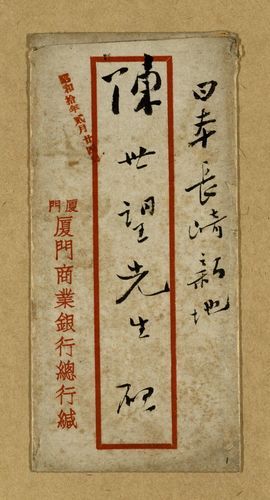 日本長崎新地
陳世望先生 啟
昭和拾年貳月廿四
厦門
厦門商業銀行總行緘